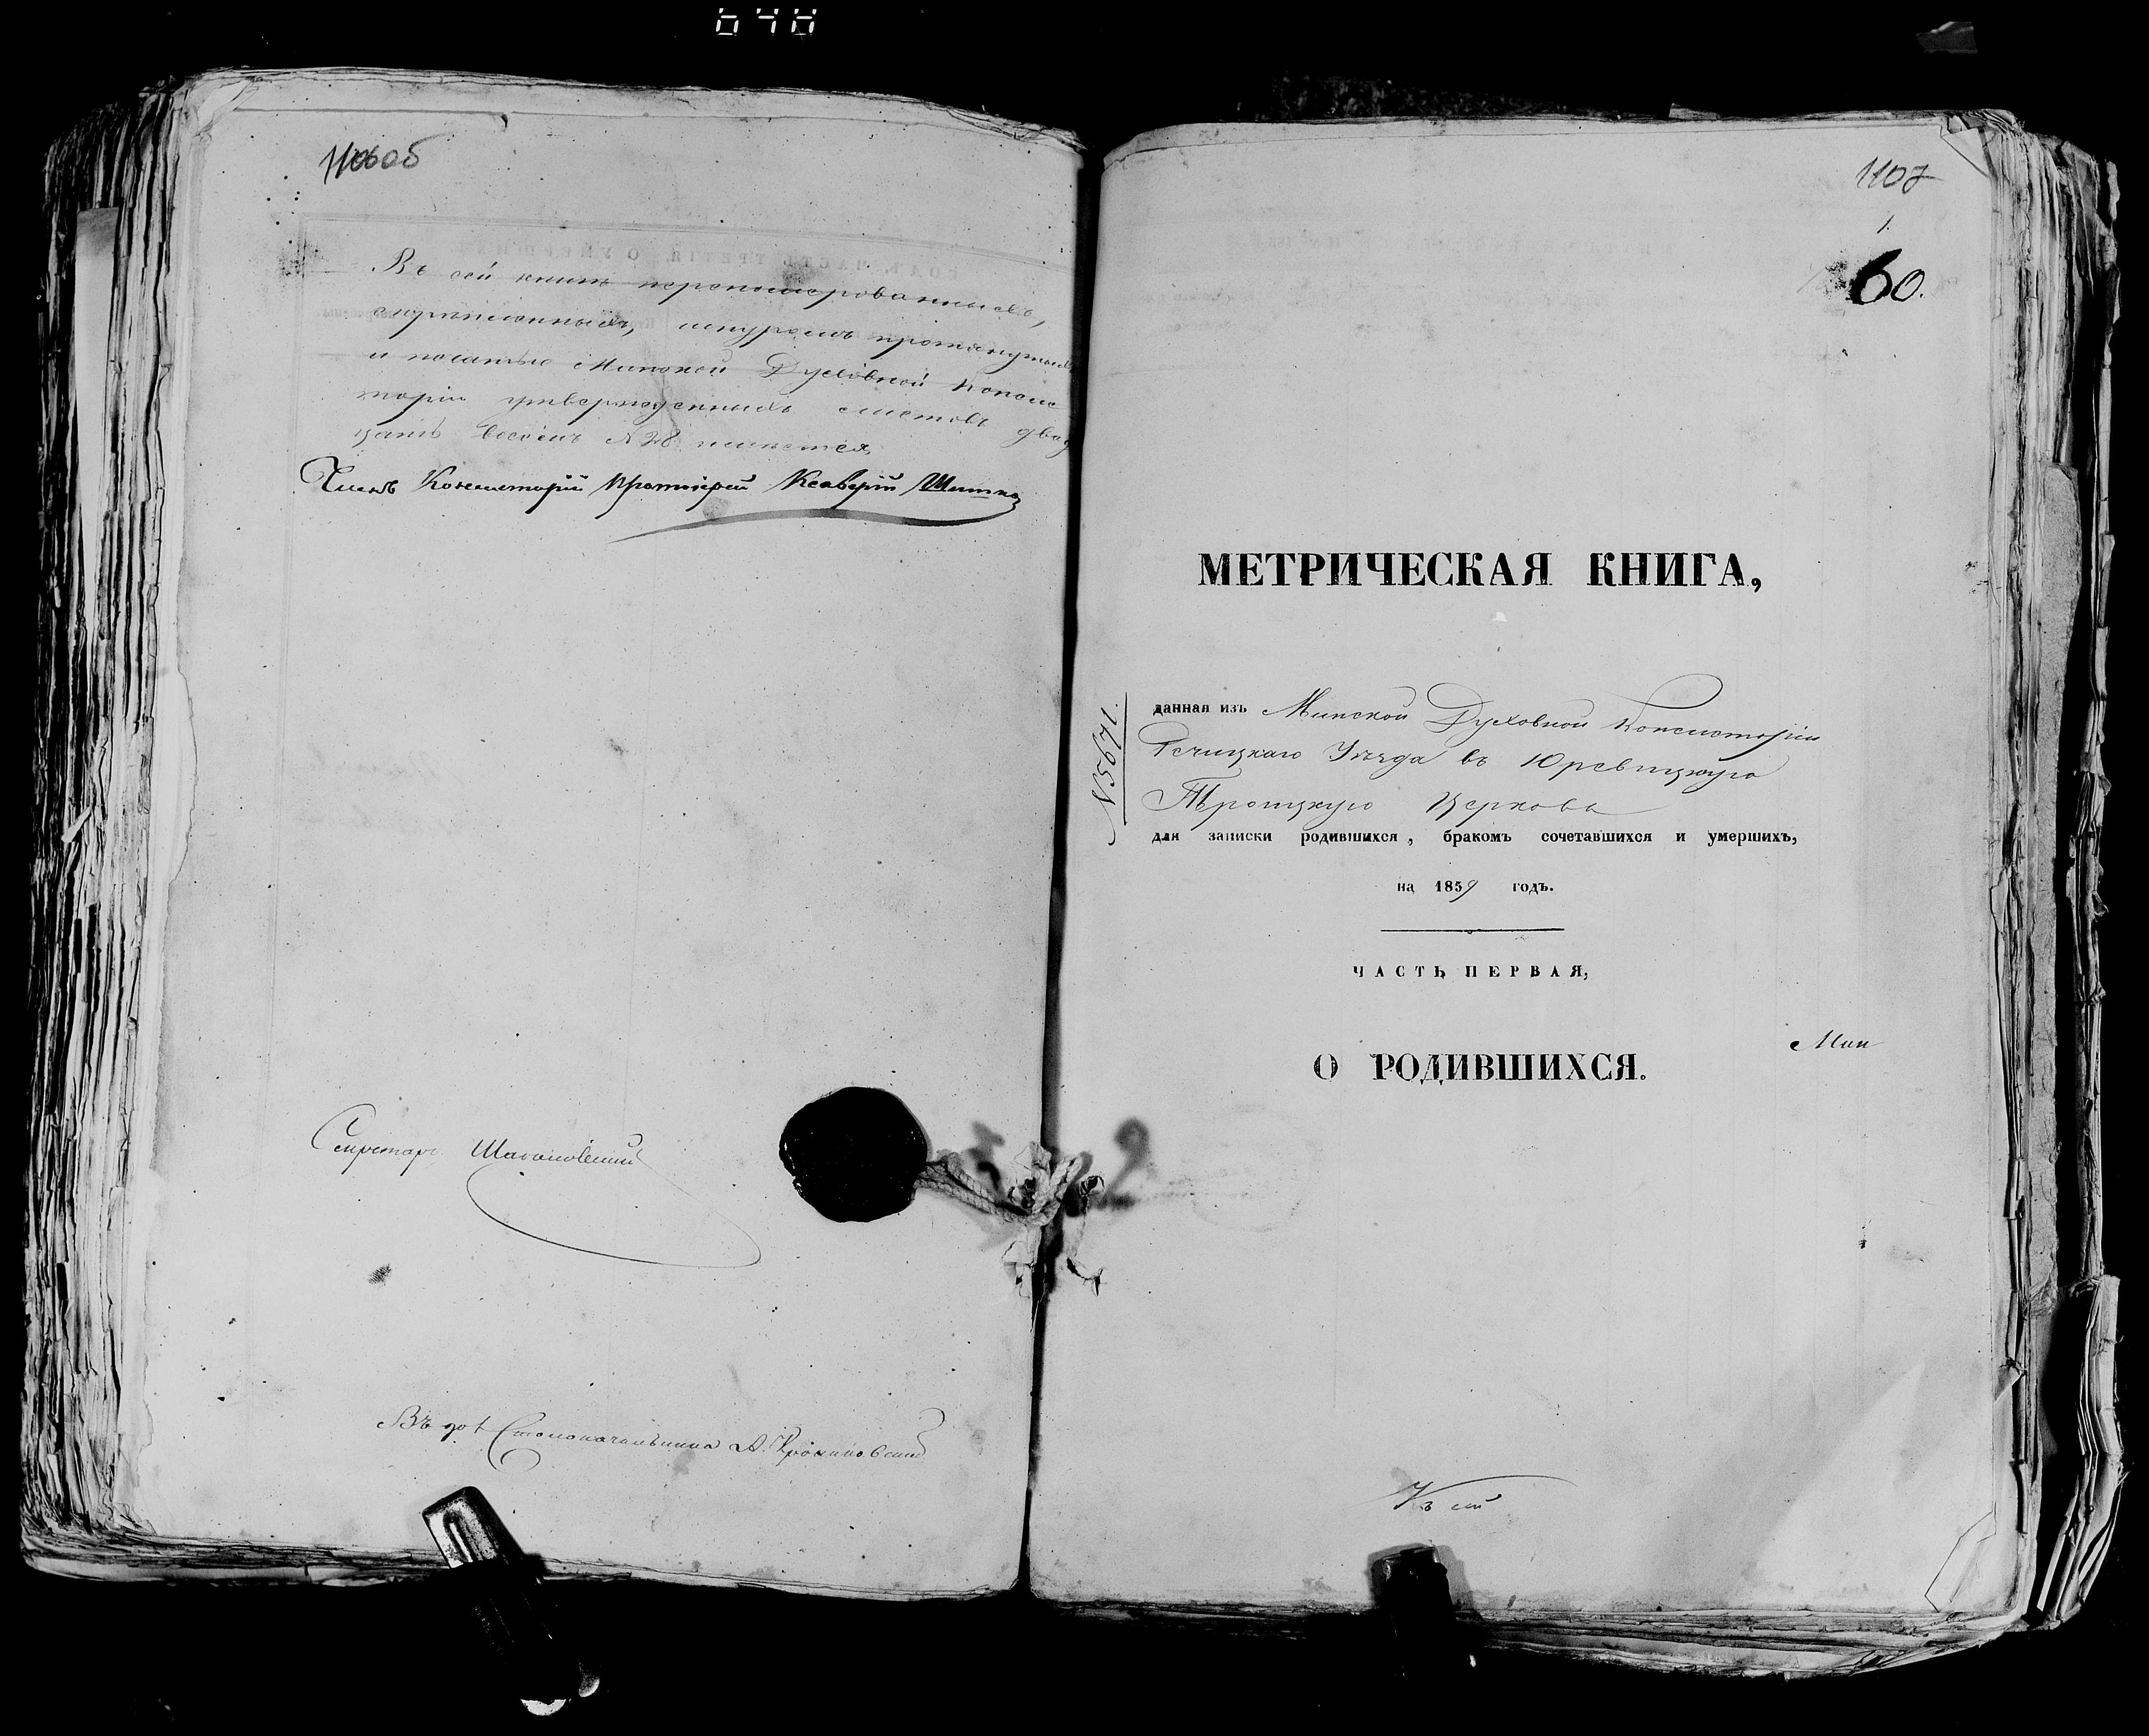 1106об
Въ сей книгѣ перенумерованныхъ,
скрѣпленныхъ, шнуромъ протянутыхъ
и печатью Минской Духовной Консис
торіи утвержденныхъ листовъ двад
цать восемь N 28 имѣется
Членъ Консисторіи Протоіерей Ксаверій
Секретарь
Столоначальника А.
1107
1.
60.
МЕТРИЧЕСКАЯ КНИГА,
N 5671.
данная изъ Минской Духовной Консисторіи
Речицкаго Уѣзда въ Юревицкую
Троицкую Церковь
для записки родившихся, бракомъ сочетавшихся и умершихъ,
на 1859 годъ.
ЧАСТЬ ПЕРВАЯ,
О РОДИВШИХСЯ.
Мин
Къ сей